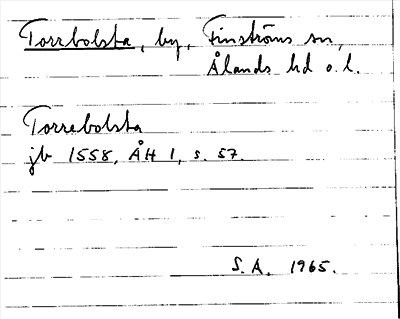 Torrbolsta, by, Finströms sn,
Ålands hd o. l.
Torrebolsta
jb 1558, ÅH 1, s. 57.
S. A. 1965.